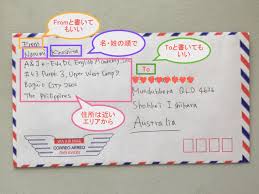 Fromと書いてもいい
名・姓の順で
Toと書いてもいい
From
To
A & J e-Edu DC. English Academy, Inc
#43 Purok 3, Upper West Camp 7
Baguio City 2600
The Philippines
Mundubbera QLD 4626
Shohhei Ishihara
Australia
住所は近い
エリアから
CORREO AEREO